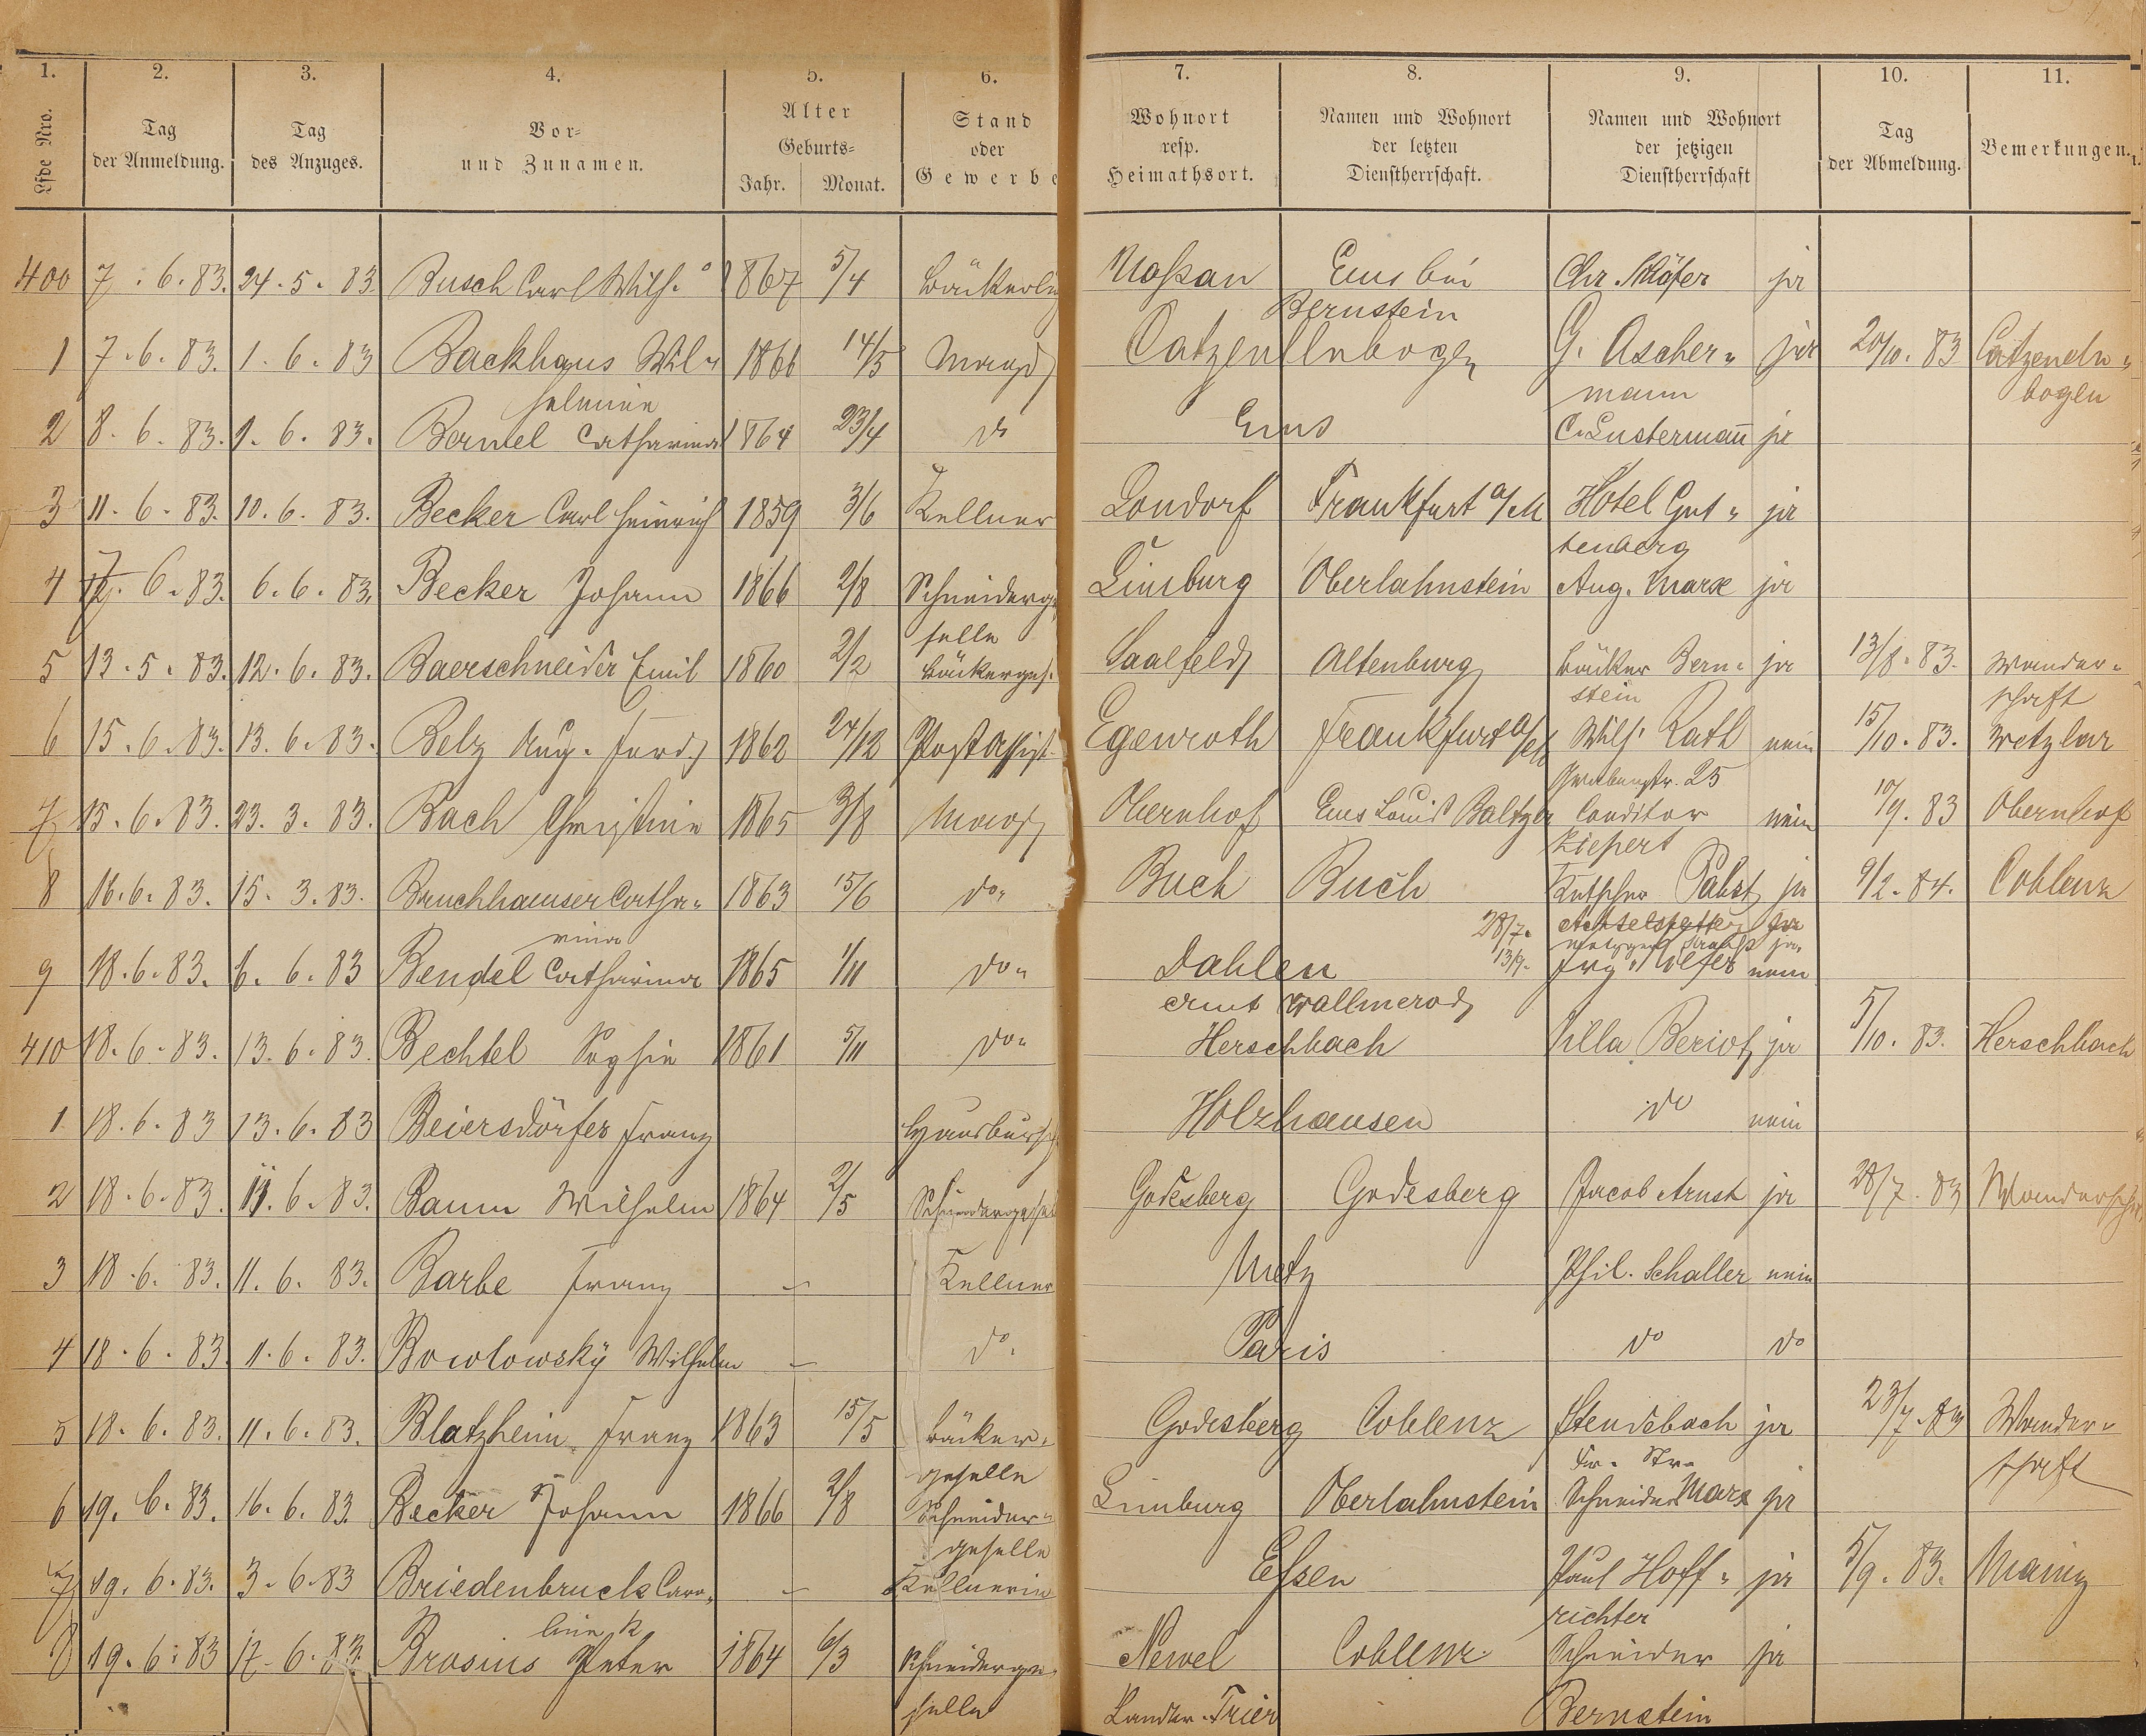 1. 2. 3. 4. 5. 6. 7. 8. 9. 10. 11.
Lfde Nro. Tag der Anmeldung. Tag des Anzuges. Vor- und Zunamen. Alter Geburts- Jahr. Monat. Stand oder Gewerbe Wohnort resp. Heimathsort. Namen und Wohnort der letzten Dienstherrschaft. Namen und Wohnort der jetzigen Dienstherrschaft Tag der Abmeldung. Bemerkungen.
400 7. 6. 83. 24. 5. 83. Busch Carl Wilh. 1867 5/4 Bäckerl Naßau Ems bei Chr. Schäfer ja
Bernstein
1 7. 6. 83. 1. 6. 83 Backhaus Wil- 1866 14/5 Magd Catzenelnbogen G. Ascher- ja 20/10. 83 Catzeneln-
helmine mann bogen
2 8. 6. 83. 1. 6. 83. Bermel Catharina 1864 23/4 do Ems C. Lustermañ ja
3 11. 6. 83. 10. 6. 83. Becker Carl Heinrich 1859 3/6 Kellner Londorf Frankfurt a/M Hotel Gut- ja
tenberg
4 6. 83. 6. 6. 83. Becker Johann 1866 2/8 Schneiderge Limburg Oberlahnstein Aug. Marx ja
selle
5 13. 5. 83. 12. 6. 83. Baerschneider Emil 1860 2/2 Bäckerges. Saalfeld Altenburg Bäcker Bern- ja 13/8. 83. Wander-
stein schaft
6 15. 6. 83. 13. 6. 83. Belz Aug. Ferd. 1862 24/12 Postassist. Egenroth Frankfurt a/M Wilh. Rath nein 15/10. 83. Wetzlar
Grabenstr. 25
7 15. 6. 83. 23. 3. 83. Bach Christine 1865 3/8 Magd Obernhof Ems Louis Baltzer Conditor nein 10/9. 83 Obernhof
Kiepert
8 16. 6. 83. 15. 3. 83. Bruchhauser Catha- 1863 15/6 do. Buch Buch Kutscher Pabst ja 9/2. 84. Coblenz
rina 28/7. ja
Metzger ja.
9 18. 6. 83. 6. 6. 83 Bendel Catharina 1865 1/11 do. Dahlen 13/9. nein
Amt Wallmerod
410 18. 6. 83. 13. 6. 83. Bechtel Sophie 1861 5/11 do. Herschbach Villa Beriot ja 5/10. 83. Herschbach
1 18. 6. 83 13. 6. 83 Beiersdörfer Franz Hausbursch Holzhausen do nein
2 18. 6. 83. 11. 6. 83. Baum Wilhelm 1864 2/5 Schneidergesell Godesberg Godesberg Jacob Arnst ja 28/7. 83 Wandersch
3 18. 6. 83. 11. 6. 83. Barbe Franz – Kellner Metz Phil. Schaller nein
4 18. 6. 83. 1. 6. 83. Bowlowsky Wilhelm – do. Paris do do
5 18. 6. 83. 11. 6. 83. Blatzheim Franz 1863 15/5 Bäcker- Godesberg Coblenz Stendebach ja 23/7. 83 Wander-
geselle schaft
6 19. 6. 83. 16. 6. 83. Becker Johann 1866 2/8 Schneider- Limburg Oberlahnstein Schneider Marx ja
geselle
7 19. 6. 83. 3. 6. 83 Briedenbruck Caro- – Kellnerin Eßen Paul Hoff- ja 5/9. 83. Mainz
line richter
8 19. 6. 83 17. 6. 83. Brosius Peter 1864 6/3 Schneiderge- Newel Coblenz Schneider ja
selle Landkr. Trier Bernstein